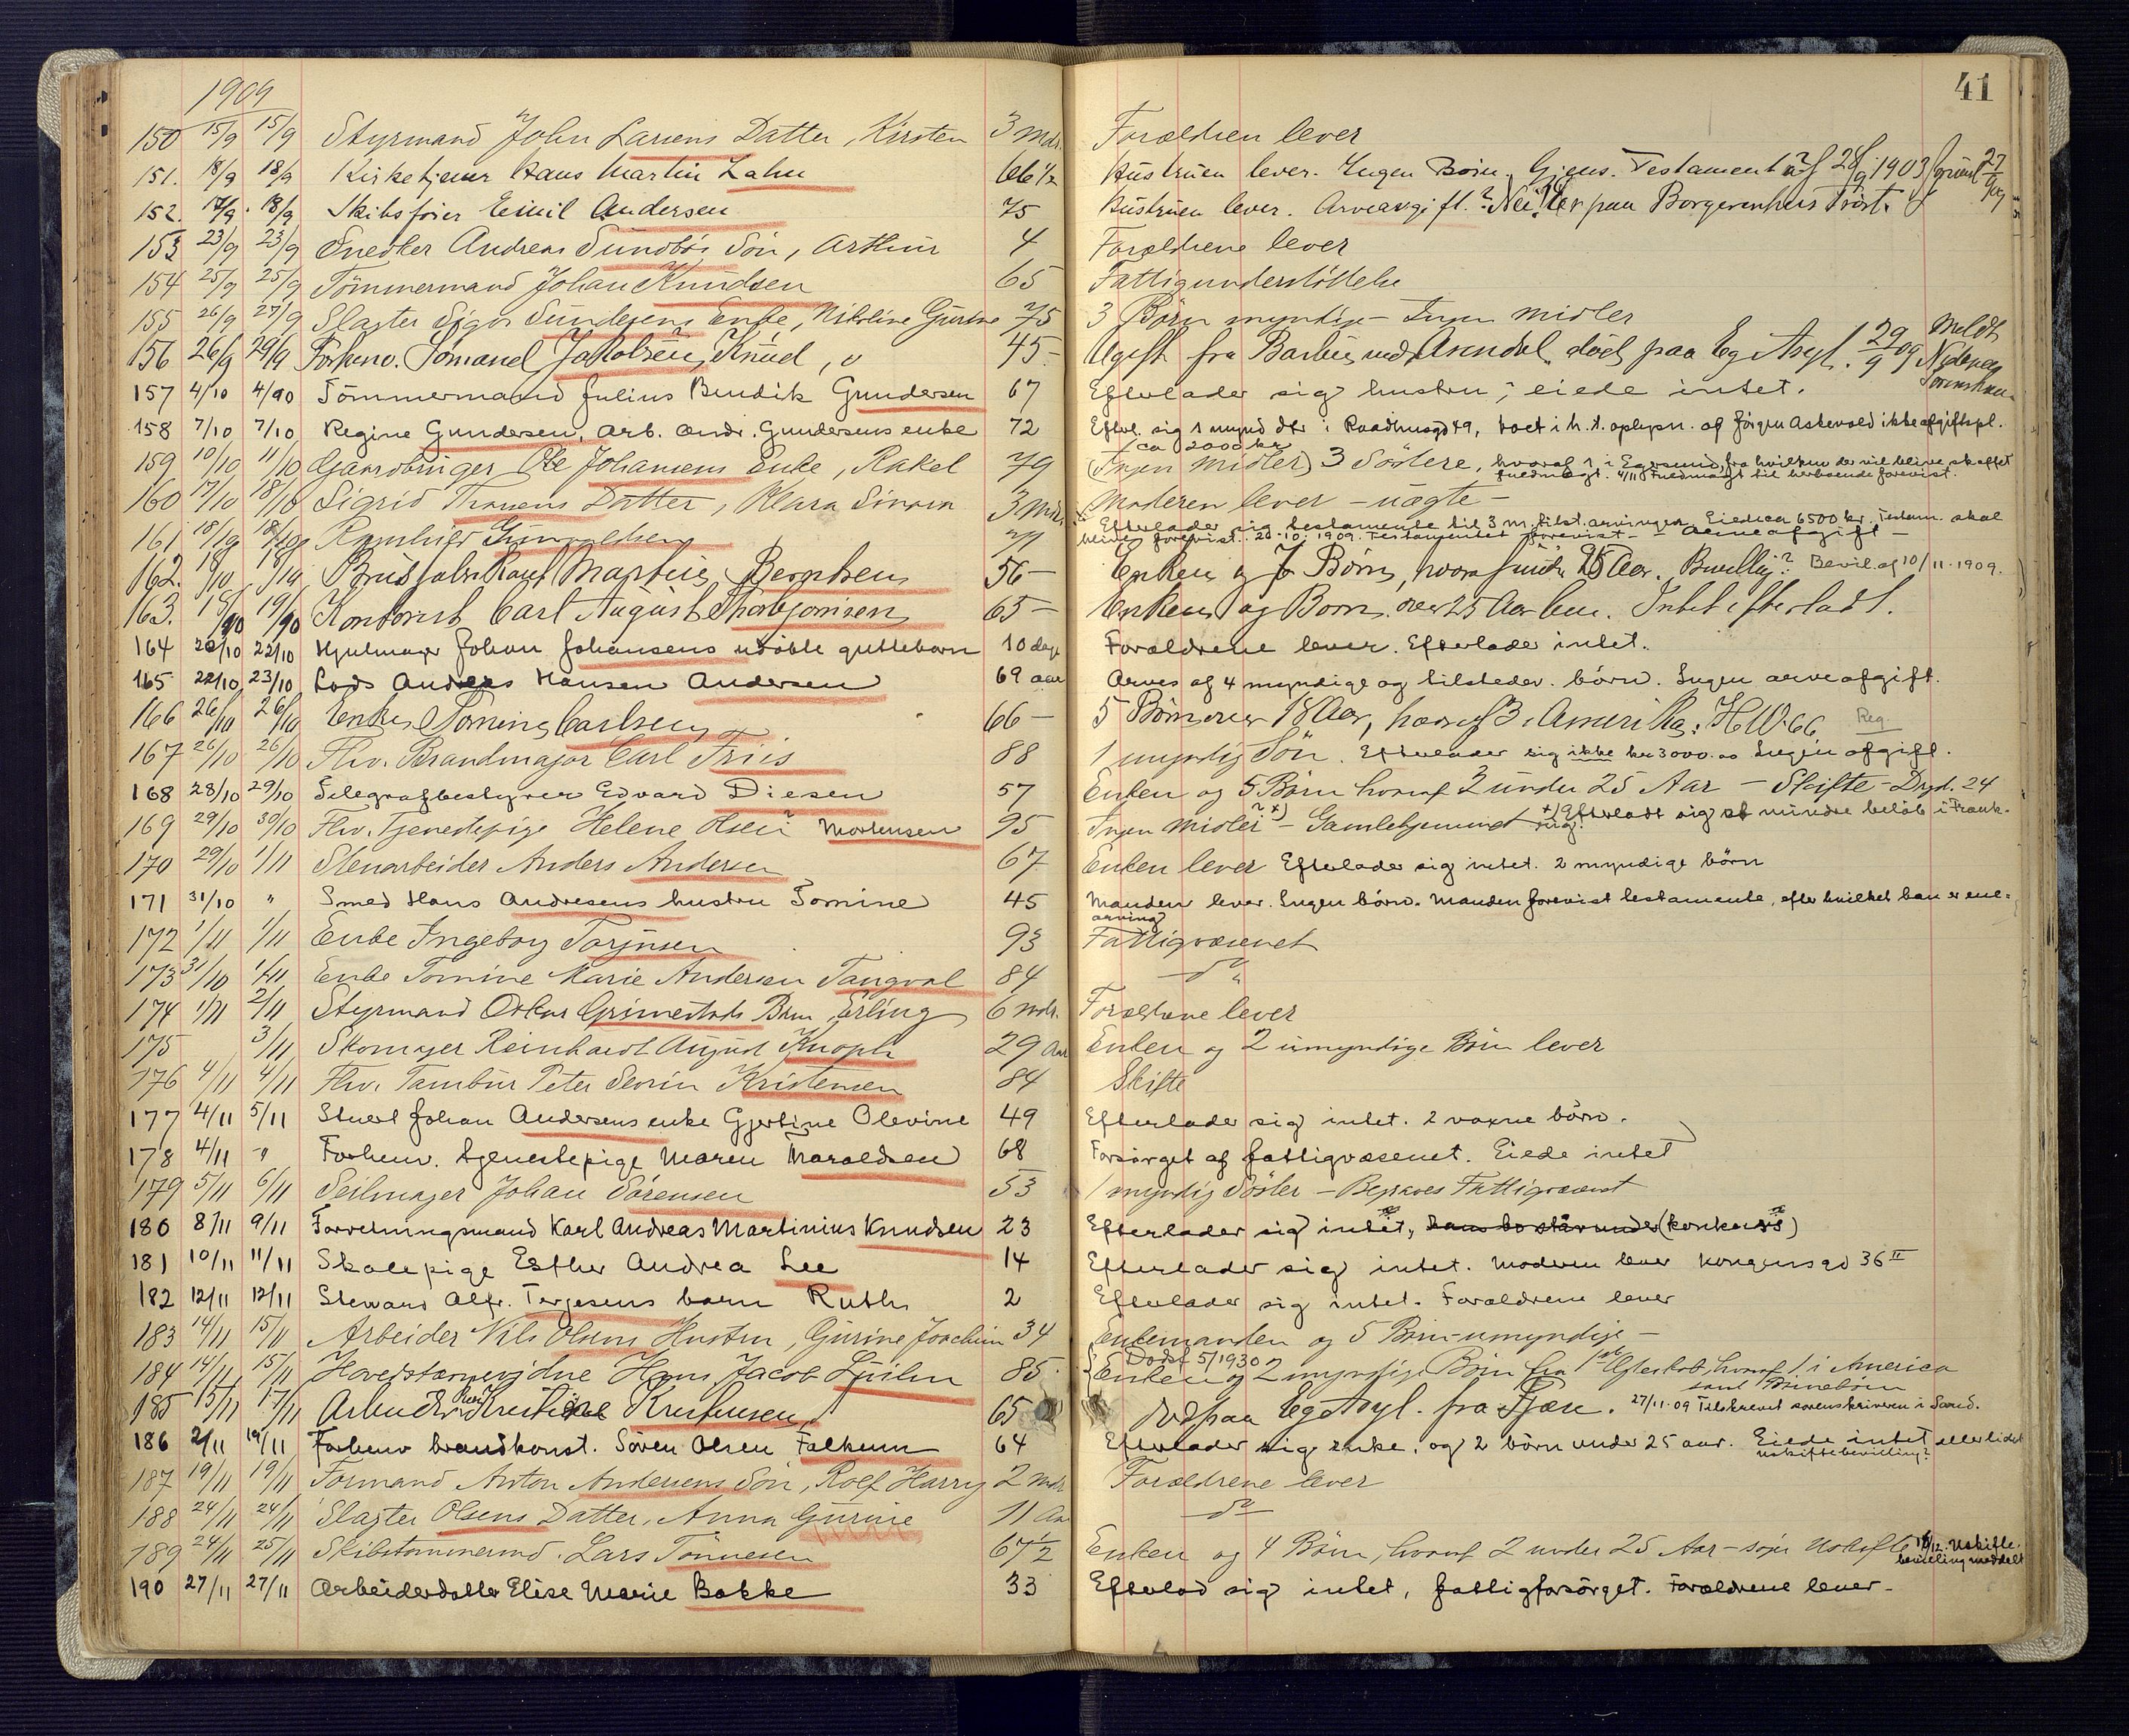 41
1909
150 15/9 15/9 Styrmand John Larsens Datter, Kirsten 3 Mdr. Forældren lever
151. 18/9 18/9 Kirketjener Hans Martin Zahn 66 1/2 Hustruen lever. Ingen Børn. Gjens. Testament af 28/9 1903
152. 17/9 18/9 Skibsfører Emil Andersen 75 Hustruen lever. Arveavgift? Nei.
153 23/9 23/9 Snedker Andreas Sundbös Sön, Arthur 4 Forældrene lever
154 25/9 25/9 Tömmermand Johan Knudsen 65 Fattigunderstöttelse
155 26/9 27/9 Slagter Sundesens Enke, Nikoline Gurine 75 3 Börn myndige - Ingen midler
156 26/9 29/9 Forhenv. Sömand Jakobsen, Knud, 45 - Ugift fra Barbu ved Arendal, död paa Eg Asyl. 29/9 09 Meldt
157 4/10 4/90 Tömmermand Julius Bendik Gundersen 67 Efterlader sig hustru; eiede intet.
158 7/10 7/10 Regine Gundersen, Arb. Andr. Gundersens enke 72 Efterl. sig 1 mynd dtr i Raadhusgd 49, boet i h. t. oplysn. af Jörgen Askevold ikke afgiftspl.
ca 2000 kr
159 10/10 11/10 Gaardbruger Ole Johansens Enke, Rakel 79 (Ingen midler) 3 Söstere, hvoraf 1 i Egersund, fra hvilken der vil blive skaffet
fuldmagt. 4/11 Fuldmagt til herboende forevist.
160 17/10 18/10 Sigrid Datter, Klara 3 Mdr. Moderen lever - uægte -
Efterlader sig testamente til 3 m. tilst. arvinger. Eiede ca 6500 kr. Testam. skal
161 18/10 18/10 Ragnhild 77 blive forevist. 20.10.1909. Testamentet forevist - Arveafgift -
162. 18/10 18/10 Martin Berntsen 56 - Enken og 7 Börn, hvoraf under 25 Aar. Bevillig? Bevil. af 10/11 1909.
163. 18/10 19/90 Kontorist Carl August Thorbjörnsen 65 - Enken og Börn over 25 Aar lever. Intet efterladt.
164 20/10 22/10 Hjulmager Johan Johansens udöbte guttebarn 10 dage Forældrene lever. Efterlader intet.
165 22/10 23/10 Lods Anders Hansen Andersen 69 aar Arves af 4 myndige og tilstedev. börn. Ingen arveafgift.
166 26/10 26/10 Enke Tomine Carlsen 66 - 5 Börn over 18 Aar, hvoraf 3 i Amerika. H.W. 66. Reg.
167 26/10 26/10 Fhv. Brandmajor Carl Friis 88 1 myndig Sön. Efterlader sig ikke kr 3000.00 Ingen afgift.
168 28/10 29/10 Telegrafbestyrer Edvard Diesen 57 Enken og 5 Börn hvoraf 2 under 25 Aar - Skifte - Drgd. 24
169 29/10 30/10 Fhv. Tjenestepige Helene Olsen Mortensen 95 Ingen midler x) - Gamlehjemmet x) Efterladt sig et mindre belöb i Frank-
rig?
170 29/10 1/11 Stenarbeider Anders Andersen 67 Enken lever Efterlader sig intet. 2 myndige börn
171 31/10 " Smed Hans Andresens hustru Tomine 45 Manden lever. Ingen börn. Manden forevist testamente, efter hvilket han er ene-
arving
172 1/11 1/11 Enke Ingeborg Torjusen 93 Fattigvæsenet
173 31/10 1/11 Enke Tomine Marie Andersen Tangval 84 do
174 1/11 2/11 Styrmand Oskar Grimestads Barn, Erling 6 mdr. Forældrene lever
175 3/11 Skomager Reinhardt August Knoph 29 Aar Enken og 2 umyndige Börn lever
176 4/11 4/11 Fhv. Tambur Peter Severin Kristensen 84 Skifte
177 4/11 5/11 Stuert Johan Andersens enke Gjertine Olevine 49 Efterlader sig intet. 2 voxne börn.
178 4/11 " Forhenv. tjenestepige Maren Haraldsen 68 Forsörget af fattigvæsenet. Eiede intet
179 5/11 6/11 Seilmager Johan Sörensen 53 1 myndig Söster - Begraves Fattigvæsenet
180 8/11 9/11 Forretningsmand Karl Andreas Martinius Knudsen 23 Efterlader sig intet, hans bo står under (konkurs)
181 10/11 11/11 Skolepige Esther Andrea Lee 14 Efterlader sig intet. Moderen lever Kongensgd 36 II
182 12/11 12/11 Steward Alfr. Terjesens barn Ruth 2 Efterlader sig intet. Forældrene lever
183 14/11 15/11 Arbeider Nils Olsens Hustru, Gurine Joachim 34 Enkemanden og 5 Börn umyndige -
Död 5/1930
184 14/11 15/11 Hans Jacob 85 Enken og 2 myndige Börn fra 1ste Ægteskab, hvoraf 1 i America
samt Börnebörn
185 15/11 17/11 Arbeider 65 Död paa Eg Asyl. fra 27/11-09 Tilskrevet sorenskriveren i Sand.
186 2/11 19/11 Forhenv brandkonst. Sören Olsen Falkum 64 Efterlader sig enke, og 2 börn under 25 aar. Eiede intet eller lidet
uskiftebevilling?
187 19/11 19/11 Formand Anton Andersens Sön, Rolf Harry 2 mdr Forældrene lever
188 24/11 24/11 Slagter Olsens Datter, Anna Gurine 11 Aar do
189 24/11 25/11 Skibstömmermd. Lars Tönnesen 67 1/2 Enken og 4 Börn, hvoraf 2 under 25 Aar - söger Uskifte 1/12. Uskifte-
bevilling meddelt
190 27/11 27/11 Arbeiderdatter Elise Marie Bakke 33 Efterlod sig intet, fattigforsörget. Forældrene lever -